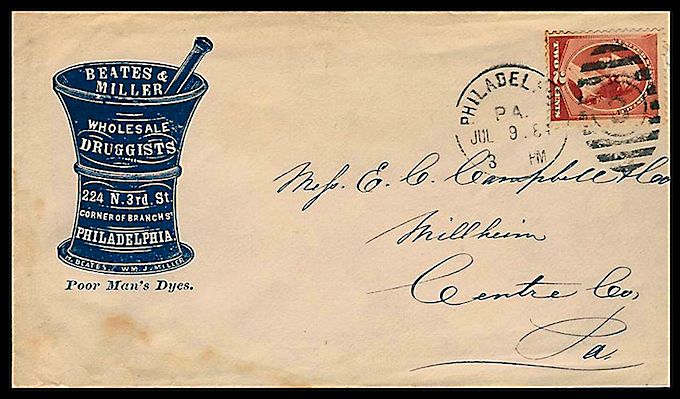 BEATES &
MILLER
WHOLESALE
DRUGGISTS
224 N. 3rd. St.
CORNER OF BRANCH St
PHILADELPHIA
H. BEATES. WM. J. MILLER
Poor Man's Dyes.
PHILADEL
PA.
JUL 9. 8
3 PM
TWO 2 CENTS
Mess. E. C. Campbell & Co
Millheim
Centre Co,
Pa.